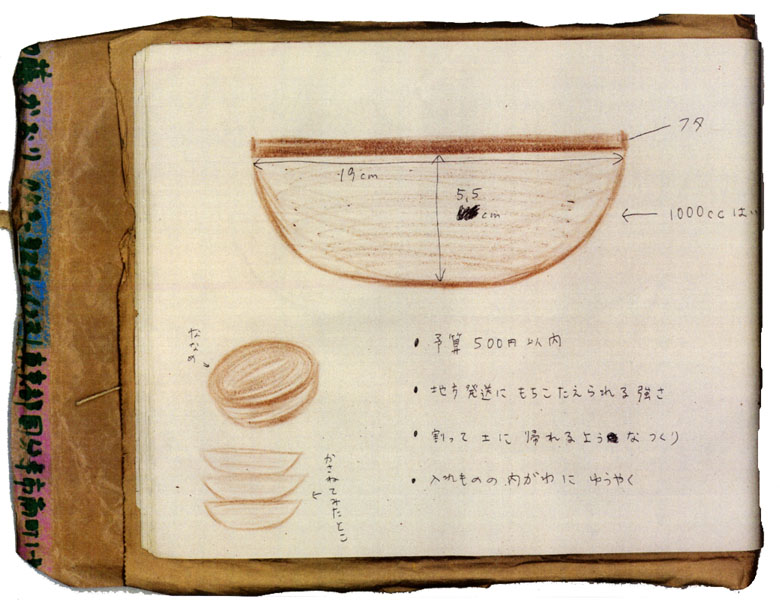 フタ
19cm
5,5
cm
1000cc はい
ななめ
・予算 500円以内
・地方発送に もちこたえられる 強さ
・割って 土に 帰れるような つくり
・入れものの 内がわに ゆうやく
かさねてみたとこ
かおり